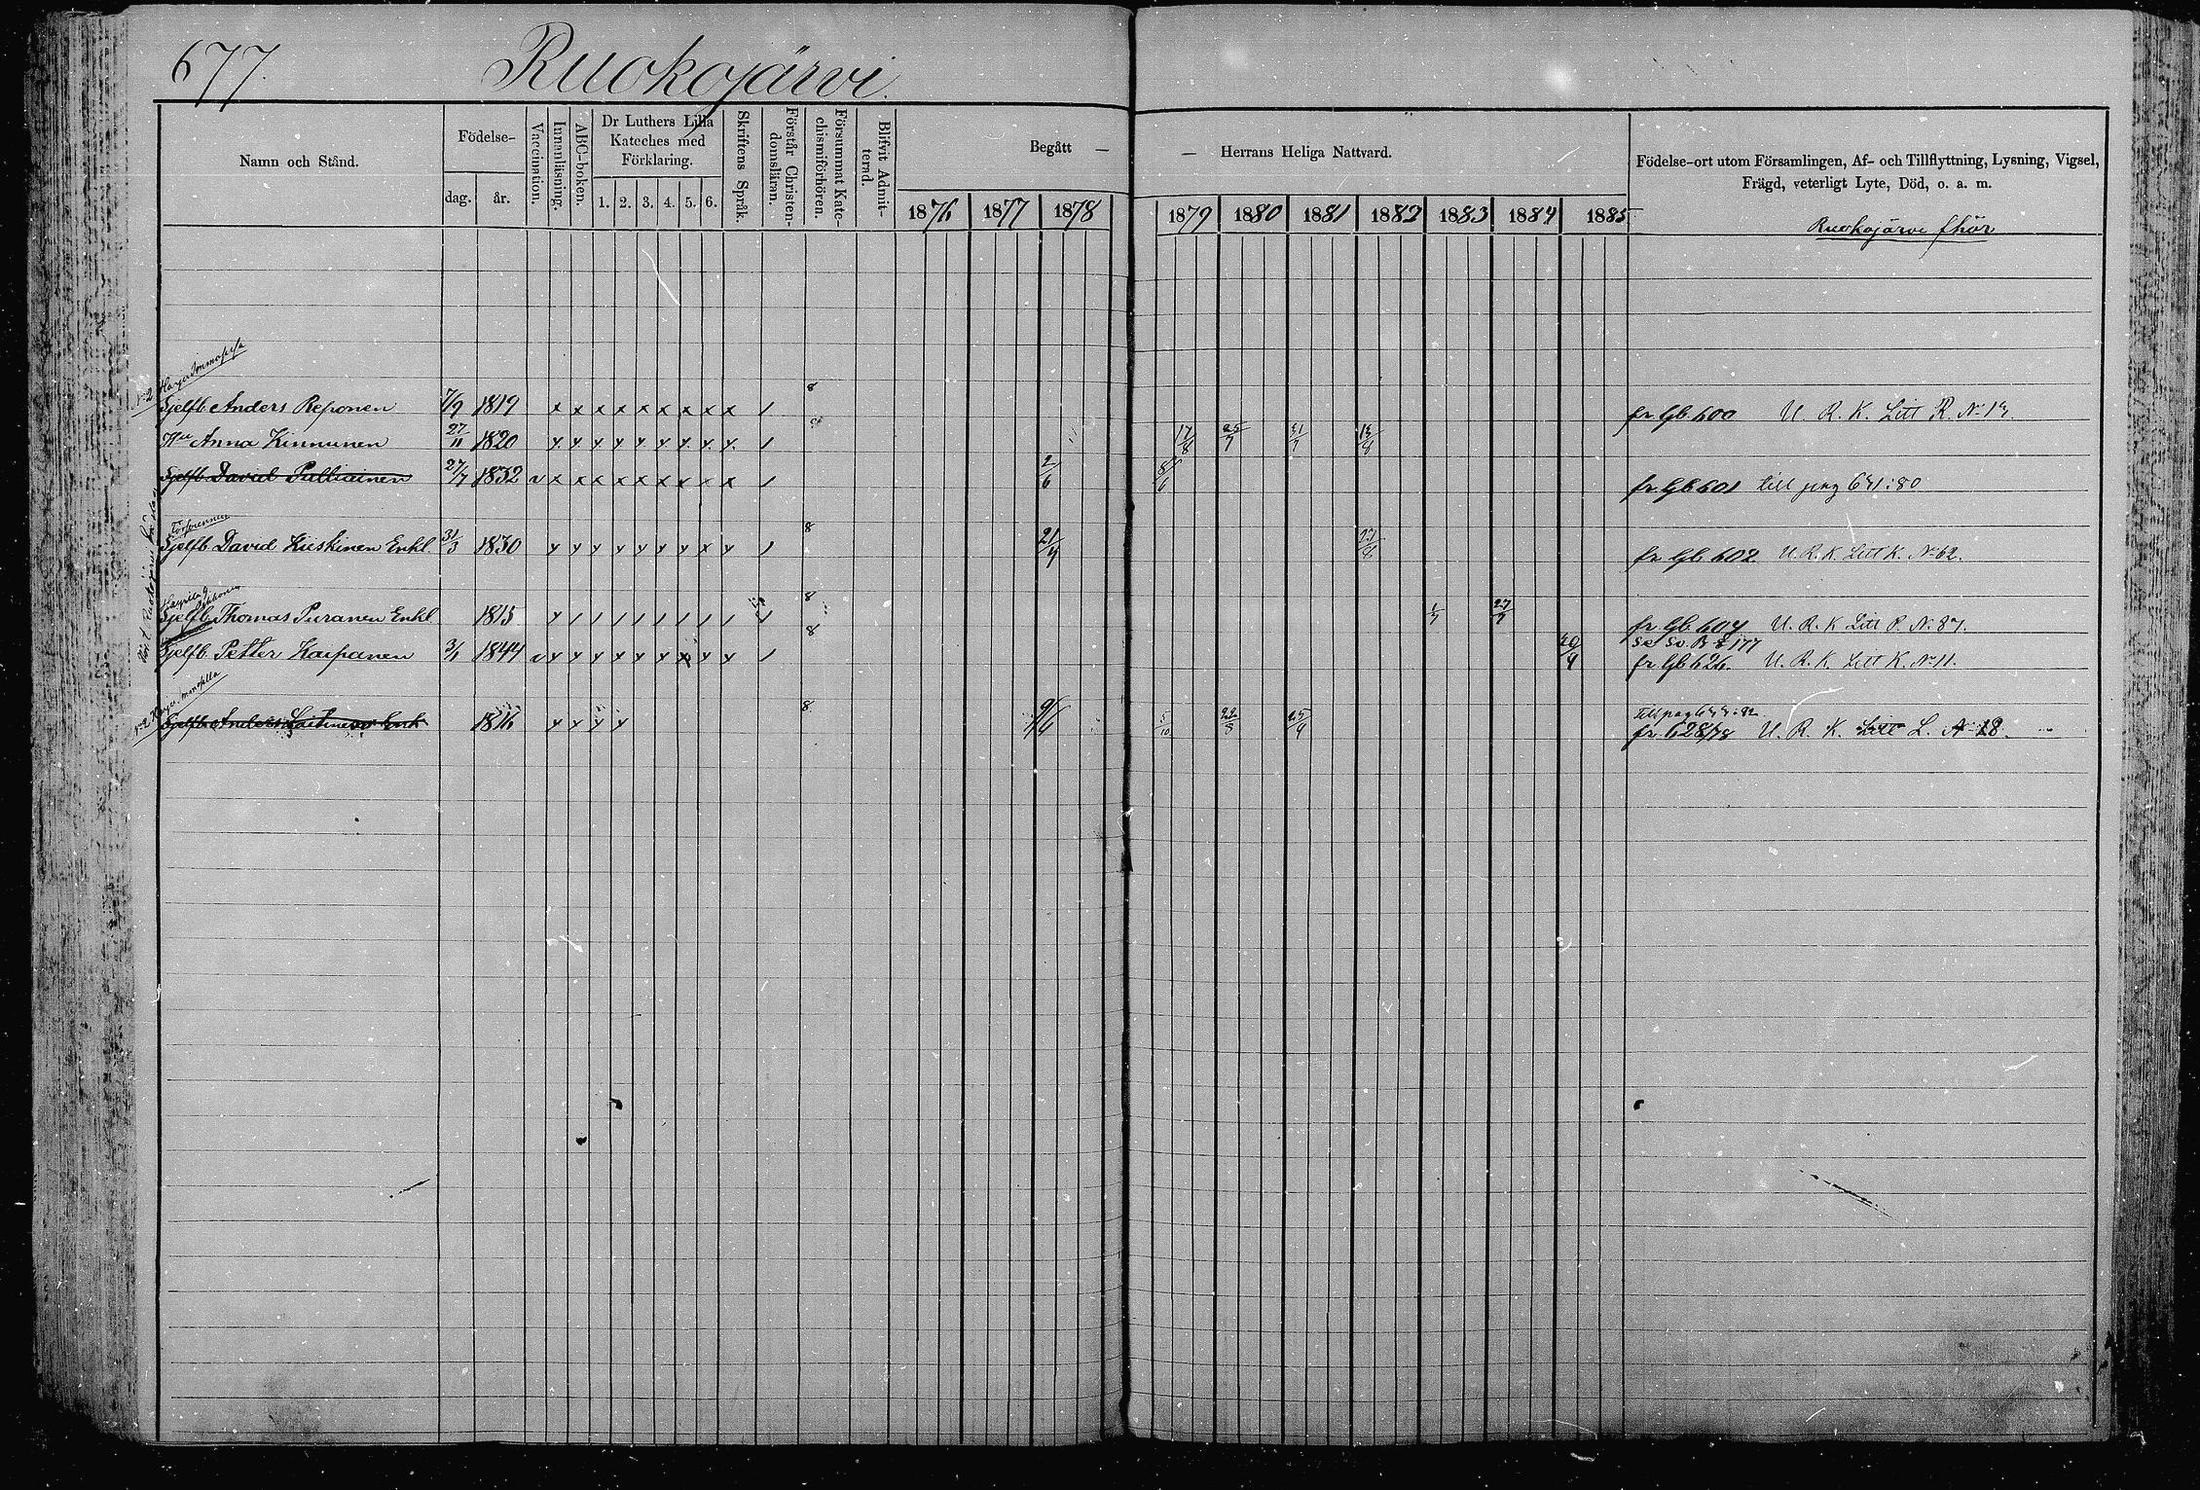 677. Ruokojärvi.
Namn och Stånd. Födelse- dag. år. Vaccination. Innanläsning. ABC-boken. Dr Luthers Lilla Kateches med Förklaring. 1. 2. 3. 4. 5. 6. Skriftens Språk. Förstår Christendomsläran. Försummat Katechismiförhören. Blifvit Admitterad. Begått — 1876 1877 1878
— Herrans Heliga Nattvard. 1879 1880 1881 1882 1883 1884 1885
Födelse-ort utom Församlingen, Af- och Tillflyttning, Lysning, Vigsel,
Frägd, veterligt Lyte, Död, o. a. m.
Ruokojärvi fhör
Sjelfb Anders Reponen 7/9 1819 x x x x x x x x x / 8 fr Gb 600 U. R. K. Litt R. No
Hu Anna Kinnunen 27/11 1820 x x x x x x x x x / 17/8 25/7 31/7 13/8
Sjelfb David Pulliainen 27/7 1832 v x x x x x x x x x / 2/6 8/6 fr Gb 601 till pag 641:80
Sjelfb David Kieskinen Enkl 31/3 1830 x x x x x x x x x / 8 21/4 27/8 fr Gb 602 U. R. K. Litt K. No 62.
Sjelfb Thomas Puranen Enkl 1815 x / / / / / / / / / 8 1/7 27/7 fr Gb 604 U. R. K Litt P. No 87.
Sjelfb Petter Karpanen 3/1 1844 v x x x x x x x x x / 8 20/4 fr Gb 626 U. R. K. Litt K. No 11.
1816 x x x x 8 9/4 5/10 22/8 25/9 till pag
fr. 628/78 U. R. K. Litt L. No 18.